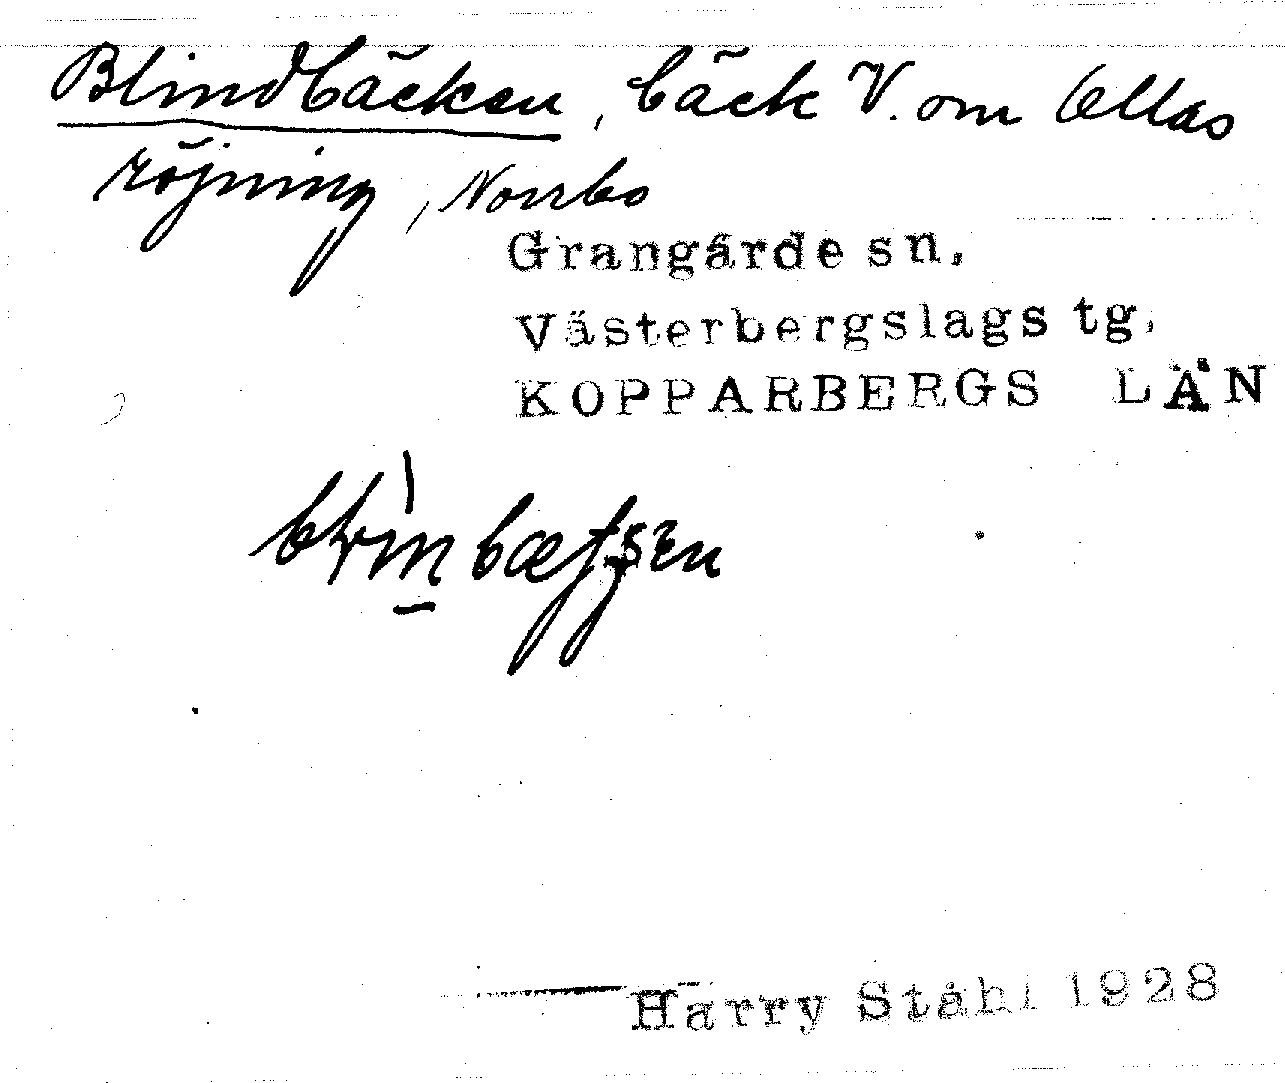 Blindbäcken, bäck V. om Ollas
röjning, Norrbo
Grangärde sn,
Västerbergslags tg.
KOPPARBERGS LÄN
Harry Ståhl 1928